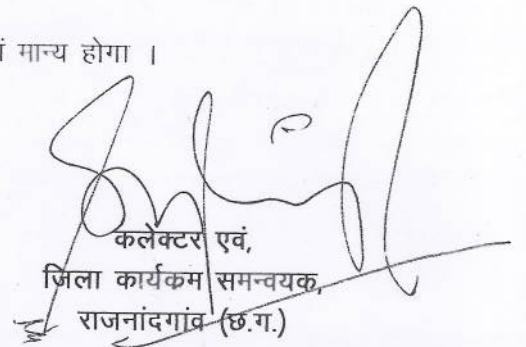 मान्य होगा ।
कलेक्टर एवं,
जिला कार्यकम समन्वयक,
राजनांदगांव (छ.ग.)